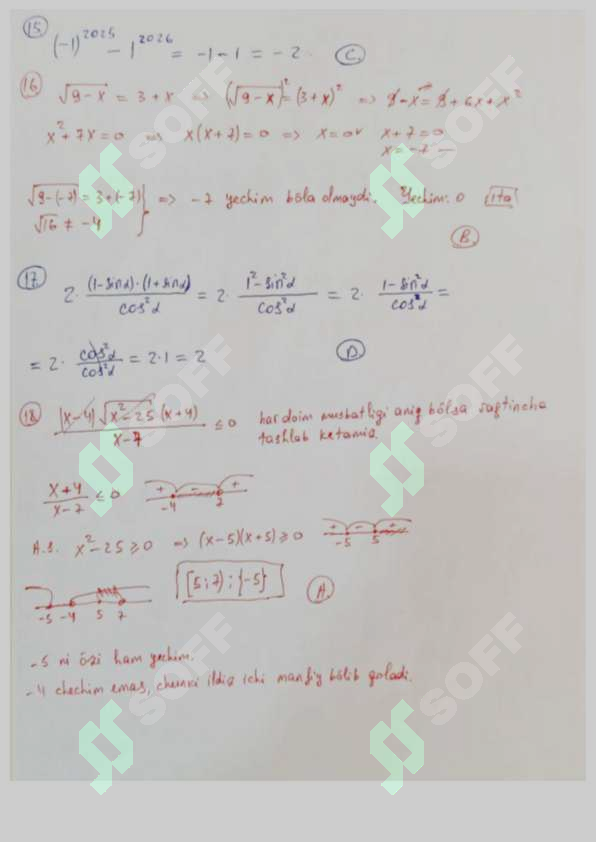 15 (-1)^2025 - 1^2026 = -1 - 1 = -2. C.
16 √(9-x) = 3 + x ⇒ (√(9-x))² = (3+x)² ⇒ 9 - x = 9 + 6x + x²
x² + 7x = 0 ⇒ x(x+7) = 0 ⇒ x = 0 v x + 7 = 0
x = -7 —
√(9-(-7)) = 3+(-7) } ⇒ -7 yechim bóla olmaydi. Yechim: 0 1ta
√16 ≠ -4
B.
17. 2 · (1-sinα)·(1+sinα)/cos²α = 2 · 1²-sin²α/cos²α = 2 · 1-sin²α/cos²α =
= 2 · cos²α/cos²α = 2·1 = 2 D
18. |x-4| √(x²-25) (x+4)/x-7 ≤ 0 har doim musbatligi aniq bólsa
tashlab ketamiz.
x+4/x-7 ≤ 0 + - + -4 7
A.S. x² - 25 ≥ 0 ⇒ (x-5)(x+5) ≥ 0 + - + -5 5
-5 -4 5 7 [5;7) ; {-5} A.
-5 ni ózi ham yechim.
-4 chechim emas, chunki ildiz ichi manfiy bólib qoladi.
SOFF
SOFF
SOFF
SOFF
SOFF
SOFF